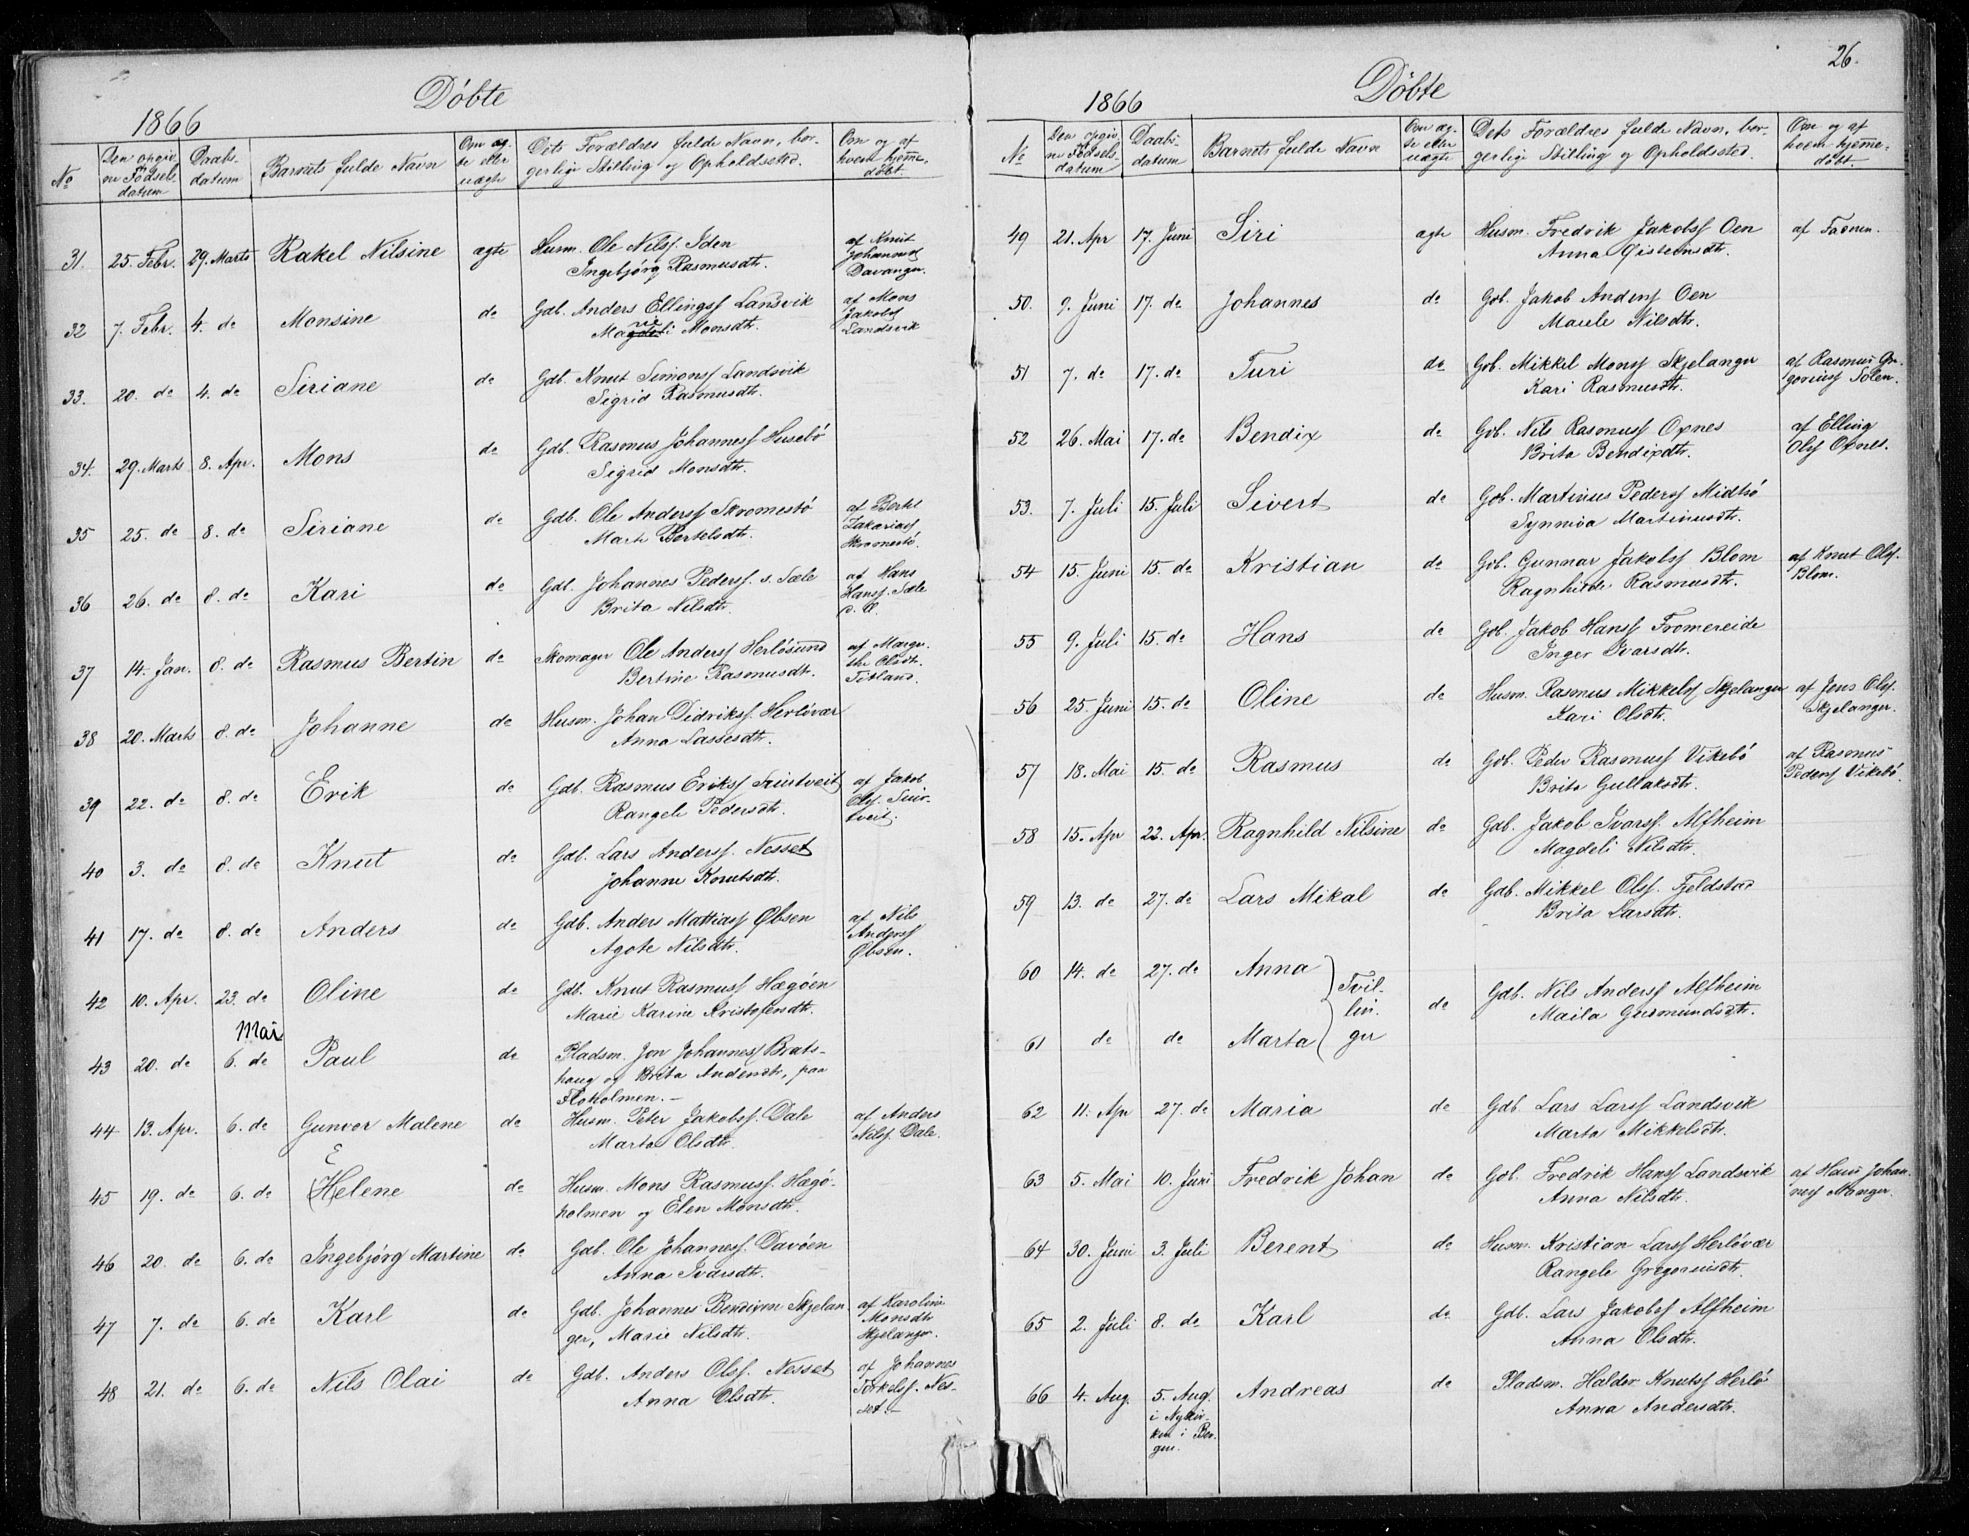 Døbte
1866
No | Den opgiv-
ne Fødsels
datum | Daabs-
datum | Barnets fulde Navn | Om æg-
te eller
uægte | Dets Forældres fulde Navn, bor-
gerlige Stilling og Opholdssted. | Om og af
hvem hjemme-
døbt.
31. | 25. Febr. | 29. Marts | Rakel Nilsine | ægte | Husm. Ole Nilss. Iden
Ingebjørg Rasmusdtr. | af Knut
Johannes
Davanger.
32 | 7. Febr. | 4. do | Monsine | do | Gdb. Anders Ellingss Landsvik
Monsdtr. | af Mons
Jakobss
Landsvik
33. | 20. do | 4. do | Siriane | do | Gdb. Knut Simonss Landsvik
Sigrid Rasmusdtr.
34. | 29. Marts | 8. Apr. | Mons | do | Gdb. Rasmus Johanness Husebø
Sigrid Monsdtr.
35 | 25. do | 8. do | Siriane | do | Gdb. Ole Anderss Skromestø
Marte Bertelsdtr. | af Bertel
Zakariass
Skromestø.
36 | 26. do | 8. do | Kari | do | Gdb. Johannes Pederss. s. Sæle
Brita Nilsdtr. | af Hans
Hanss. Sæle
37 | 14. Jan. | 8. do | Rasmus Bertin | do | Skomager Ole Anderss Herløsund
Bertine Rasmusdtr. | af Margre-
the Olsdtr.
Titland.
38 | 20. Marts | 8. do | Johanne | do | Husm. Johan Didrikss. Herløvær
Anna Lassesdtr.
39 | 22. do | 8. do | Erik | do | Gdb. Rasmus Erikss
Rangele Pedersdtr. | af Jakob
Olss.
tveit.
40 | 3. do | 8. do | Knut | do | Gdb. Lars Anderss. Nesset
Johanne Knutsdtr.
41 | 17. do | 8. do | Anders | do | Gdb. Anders Mattiass Øbsen
Agote Nilsdtr. | af Nils
Anderss
Øbsen.
42 | 10. Apr. | 23. do | Oline | do | Gdb. Knut Rasmuss Hægøen
Marie Karine Kristofersdtr.
Mai
43 | 20. do | 6. do | Paul | do | Pladsm. Jon Johanness Brats-
haug og Brita Andersdtr, paa
Floholmen. -
44 | 13. Apr. | 6. do | Gunvor Malene | do | Husm. Peter Jakobss. Dale
Marta Olsdtr. | af Anders
Nilss. Dale.
E
45 | 19. do | 6. do | (H)elene | do | Husm. Mons Rasmuss. Hægø-
holmen og Elen Monsdtr.
46 | 20. do | 6. do | Ingebjørg Martine | do | Gdb. Ole Johanness. Davøen
Anna Ivarsdtr.
47 | 7. do | 6. do | Karl | do | Gdb. Johannes Bendixen Skjelan-
ger, Marie Nilsdtr. | af Karoline
Monsdtr
Skjelanger.
48 | 21. do | 6. do | Nils Olai | do | Gdb. Anders Olss. Nesset
Anna Olsdtr. | af Johannes
Torkelss. Nes-
set. -
26.
Døbte
1866
No | Den opgiv-
ne Fødsels
datum | Daabs-
datum | Barnets fulde Navn | Om æg-
te eller
uægte | Dets Forældres fulde Navn, bor-
gerlige Stilling og Opholdssted. | Om og af
hvem hjemme-
døbt.
49 | 21. Apr | 17. Juni | Siri | ægte | Husm. Fredrik Jakobss Oen
Anna Øistensdtr. | af Faderen.
50. | 9. Juni | 17. do | Johannes | do | Gdb. Jakob Anderss Oen
Marele Nilsdtr.
51 | 7. do | 17. do | Turi | do | Gdb. Mikkel Monss Skjelanger
Kari Rasmusdtr. | af Rasmus Gre-
goriuss Solen.
52 | 26. Mai | 17. do | Bendix | do | Gdb. Nils Rasmuss Oxnes
Brita Bendixdtr. | af Elling
Olss Oxnes.
53. | 7. Juli | 15. Juli | Sivert | do | Gdb. Martinus Pederss Midtø
Synnøa Martinusdtr.
54 | 15. Juni | 15. do | Kristian | do | Gdb. Gunnar Jakobss Blom
Ragnhilde Rasmusdtr. | af Knut Olss.
Blom.
55 | 9. Juli | 15. do | Hans | do | Gdb. Jakob Hanss Fromereide
Inger Ivarsdtr.
56 | 25. Juni | 15. do | Oline | do | Husm. Rasmus Mikkelss Skjelanger
Kari Olsdtr. | af Jens Olss.
Skjelanger.
57 | 18. Mai | 15. do | Rasmus | do | Gdb. Peder Rasmuss Vikebø
Brita Gullaksdtr. | af Rasmus
Pederss Vikebø.
58 | 15. Apr | 22. Apr. | Ragnhild Nilsine | do | Gdb. Jakob Ivarss. Alfheim
Magdeli Nilsdtr.
59 | 13. do | 27. do | Lars Mikal | do | Gdb. Mikkel Olss. Fjeldstad
Brita Larsdtr.
60 | 14. do | 27. do | Anna | Tvil-
lin-
ger | do | Gdb. Nils Anderss Alfheim
Maila Gudmundsdtr.
61 | do | do | Marta
62 | 11. Apr | 27. do | Maria | do | Gdb. Lars Larss Landsvik
Marta Mikkelsdtr.
63 | 5. Mai | 10. Juni | Fredrik Johan | do | Gdb. Fredrik Hanss Landsvik
Anna Nilsdtr. | af Hans Johan-
ness Manger.
64 | 30. Juni | 3. Juli | Berent | do | Husm. Kristian Larss Herløvær
Rangele Gregoriusdtr.
65 | 2. Juli | 8. do | Karl | do | Gdb. Lars Jakobss Alfheim
Anna Olsdtr.
66 | 4. Aug. | 5. Aug.
i Nykir-
ken i Ber-
gen. | Andreas | do | Pladsm. Haldor Knutss Herlø
Anna Andersdtr.